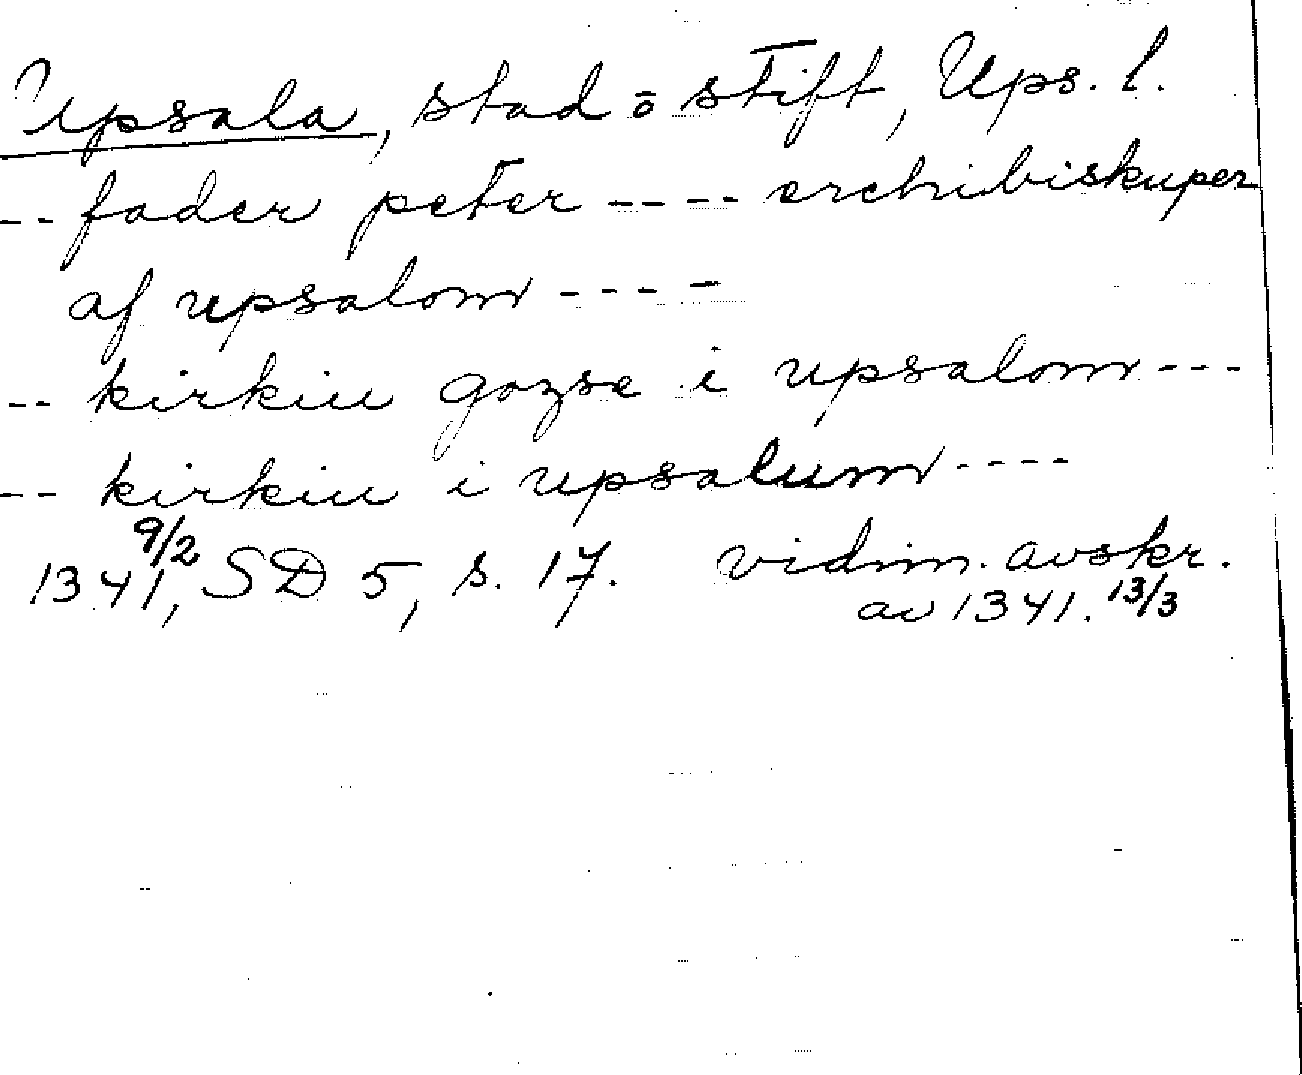 Upsala, stad o stift, Ups. l.
-- fader peter ---- erchibiskuper
af upsalom ----
-- kirkiu gozse i upsalom ---
-- kirkiu i upsalum ----
1341, 9/2 SD 5, s. 17. vidim. avskr.
av 1341. 13/3